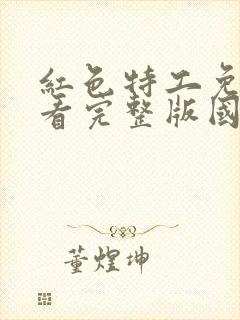 紅色特工免
看完整版國
董煌坤